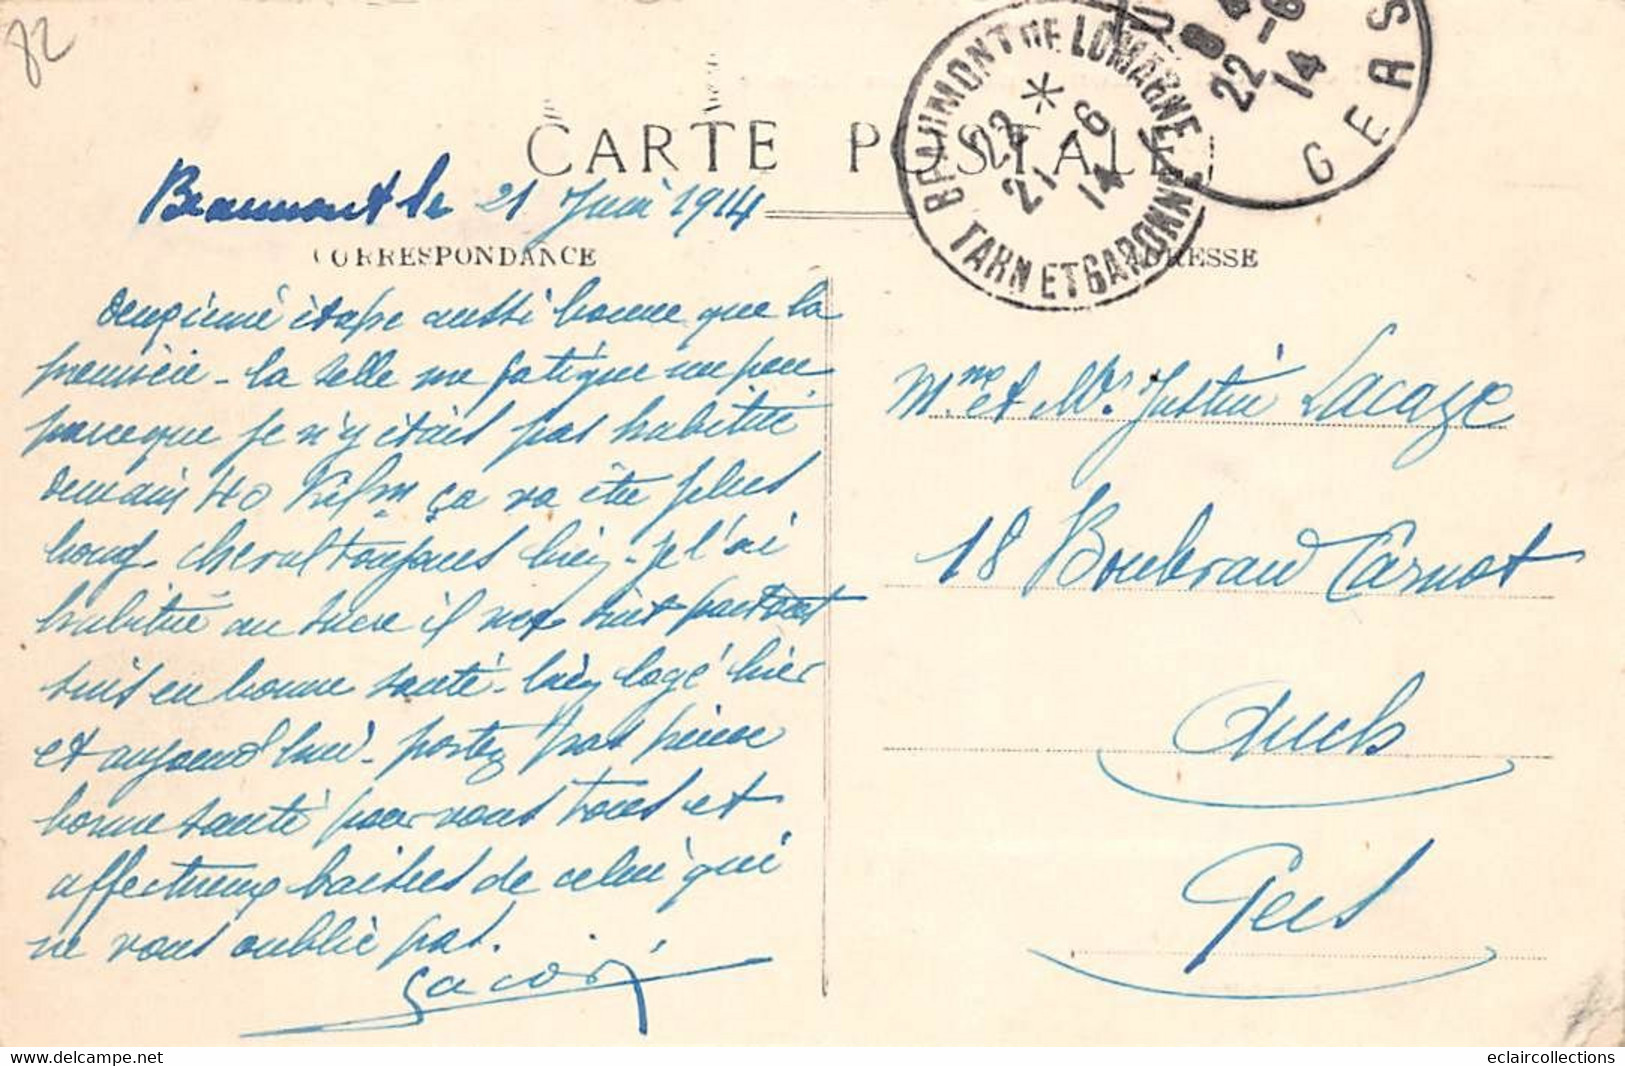 82
CARTE POSTALE
BEAUMONT DE LOMAGNE
22 * 
21 - 6
14
TARN ET GARONNE
22 - 6
14
GERS
Beaumont le 21 Juin 1914
CORRESPONDANCE
ADRESSE
deuxième étape aussi bonne que la
première - la selle me fatigue un peu
parceque je n'y étais pas habitué
demain 40 Kilm ça va être plus
long. cheval toujours bien - je l'ai
habitué au sucre il me suit partout
suis en bonne santé - bien logé hier
et aujourd'hui - portez pas peine
bonne santé pour vous tous et
affectueux baisers de celui qui
ne vous oublie pas.
Mme et Mr Justin Lacaze
18 Boulevard Carnot
Auch
Gers
eclaircollections